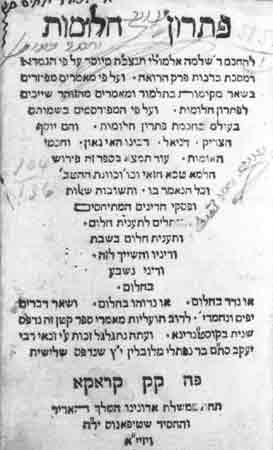 פתרון חלומות
להחכם ר' שלמה אלמולי תנצב"ה מיוסד על פי הגמרא
דמסכת ברכות פרק הרואה · ועל פי מאמרים מפוזרים
בשאר מקומות בתלמוד ומאמרים מהזוהר שייכים
לפתרון חלומות · ועל פי המפורסמים בשמותם
בעולם בחכמת פתרון חלומות · והם יוסף
הצדיק · דניאל · רבינו האי גאון · וחכמי
האומות · עוד תמצא בספר זה פירוש
הלמא טבא חזאי וכו' וכוונת ההטב'
וכל הנאמר בו · ותשובות שאלות
ופסקי הדינים המתיחסים
לתענית חלום ·
ותענית חלום בשבת
ודיניו והשייך לזה ·
ודיני נשבע
בחלום ·
או נדר בחלום · או נדוהו בחלום · ושאר דברים
יפים ונחמדי' · לרוב תועליות מאמרי ספר קטן זה נדפס
שנית בקוסטנטינא · ועתה נתגלגל זכות ע"י זכאי רבי
יעקב כה"ם בר נפתלי מלובלין י"ץ שנדפס שלישית
פה קק קראקא
תחת ממשלת אדונינו המלך האדיר
והחסיד שטיפאנוס יר"ה